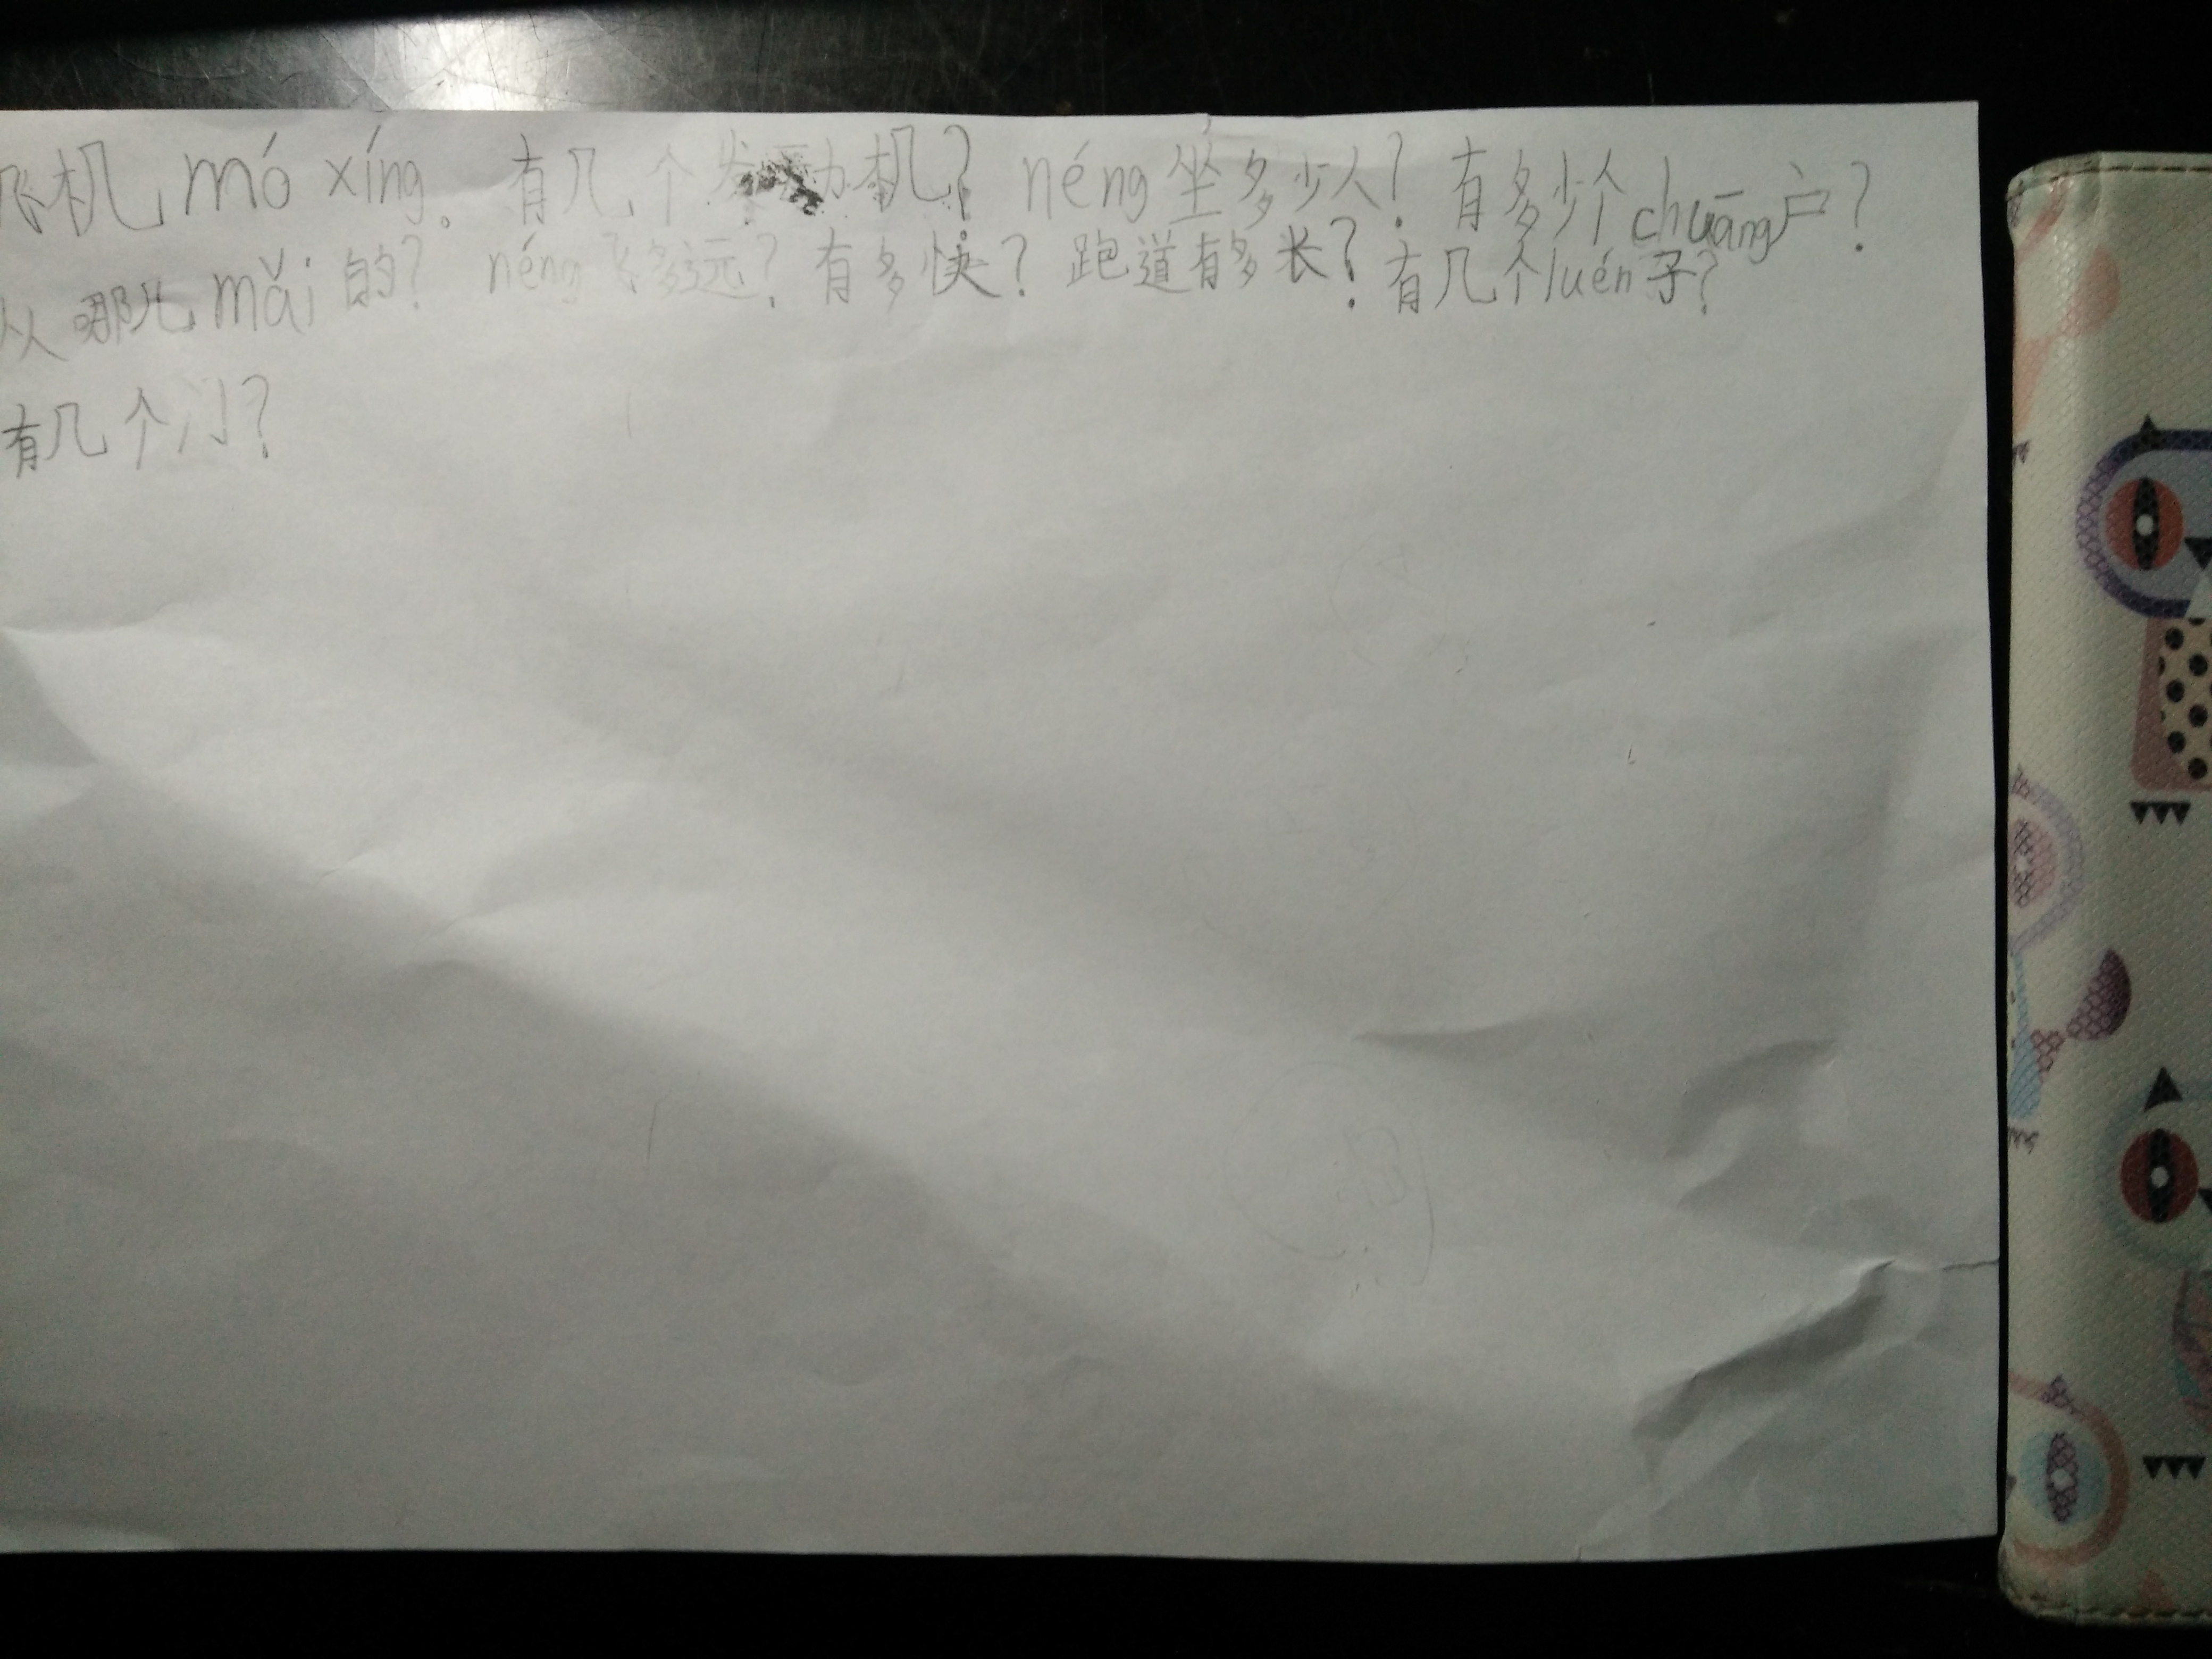 飞机 mó xíng。有几个发动机？néng 坐多少人？有多少个 chuāng 户？
从哪儿 mǎi 的？néng 飞多远？有多快？跑道有多长？有几个 luén 子？
有几个门？